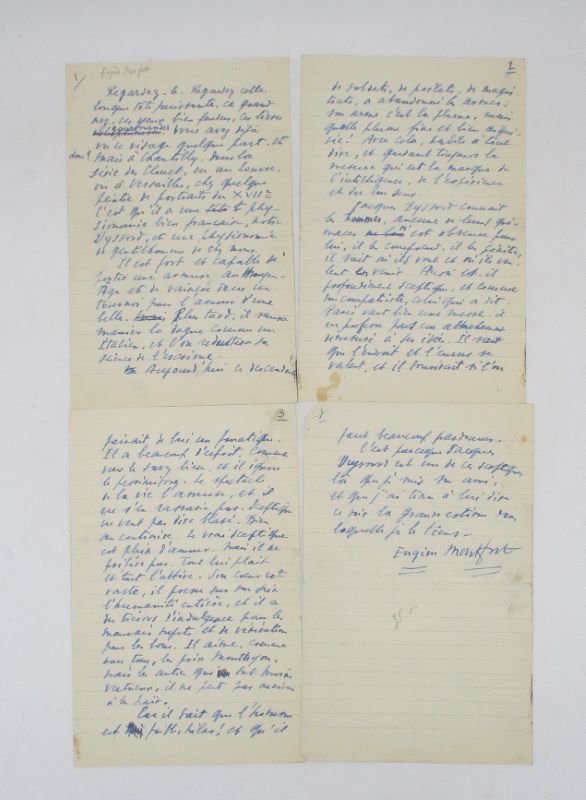 1/ Eugène Montfort
Regardez-le. Regardez cette
longue tête puissante, ce grand
nez, ces yeux bien fendus, ces lèvres
gourmandes
vous avez déjà
vu ce visage quelque part. Où
donc?
mais à Chantilly, dans la
série des Clouet, ou au Louvre
ou à Versailles, chez quelque
peintre de portraits du XVIIe
C'est qu'il a une phy-
sionomie bien française, notre
Dyssord, et une physionomie
de gentilhomme de chez nous.
Il est fort et capable de
porter une armure au Moyen-
Age et de vaincre dans un
tournoi pour l'amour d'une
belle. Plus tard, il saura
manier la dague comme un
Italien, et l'on sa
science de l'escrime.
Aujourd'hui ce descendant
2
de soldats, de prélats, de magis-
trats, a abandonné les armes;
son arme c'est la plume, mais
quelle plume fine et bien aigui-
sée! Avec cela, habile à tout
dire, et gardant toujours la
mesure qui est la marque de
l'intelligence, de l'expérience
et du bon sens.
Jacques Dyssord connaît
les hommes, aucune de leurs gri-
maces n'est obscure pour
lui, il le comprend, il les pénètre,
il sait où ils vont et où ils veu-
lent en venir. Aussi est-il
profondément sceptique, et comme
son compatriote, celui qui a dit:
Paris vaut bien une messe, il
ne professe pas un attachement
à ses idées. Il sait
que l'endroit et l'envers se
valent, et il sourirait si l'on
3
faisait de lui un fanatique.
Il a beaucoup d'esprit, comme
vous le savez bien, et il ignore
le pessimisme. Le spectacle
de la vie l'amuse, et il
ne s'en rassasie pas. Sceptique
ne veut pas dire blasé. Bien
au contraire. Le vrai sceptique
est plein d'amour. Mais il ne
pas. Tout lui plaît
et tout l'attire. Son cœur est
vaste, il presse sur son sein
l'humanité entière, et il a
des trésors d'indulgence pour les
mauvais sujets et de vénération
pour les bons. Il aime, comme
nous tous, le prix Monthyon,
mais les autres qui sont moins
vertueux, il ne peut pas arriver
à les haïr.
Car il sait que l'homme
est faible, hélas! et qu'il
4
faut beaucoup pardonner.
C'est parce que Jacques
Dyssord est un de ces sceptiques
là que je suis son ami,
et que j'ai tenu à lui dire
ce soir la grande estime dans
laquelle je le tiens.
Eugène Montfort